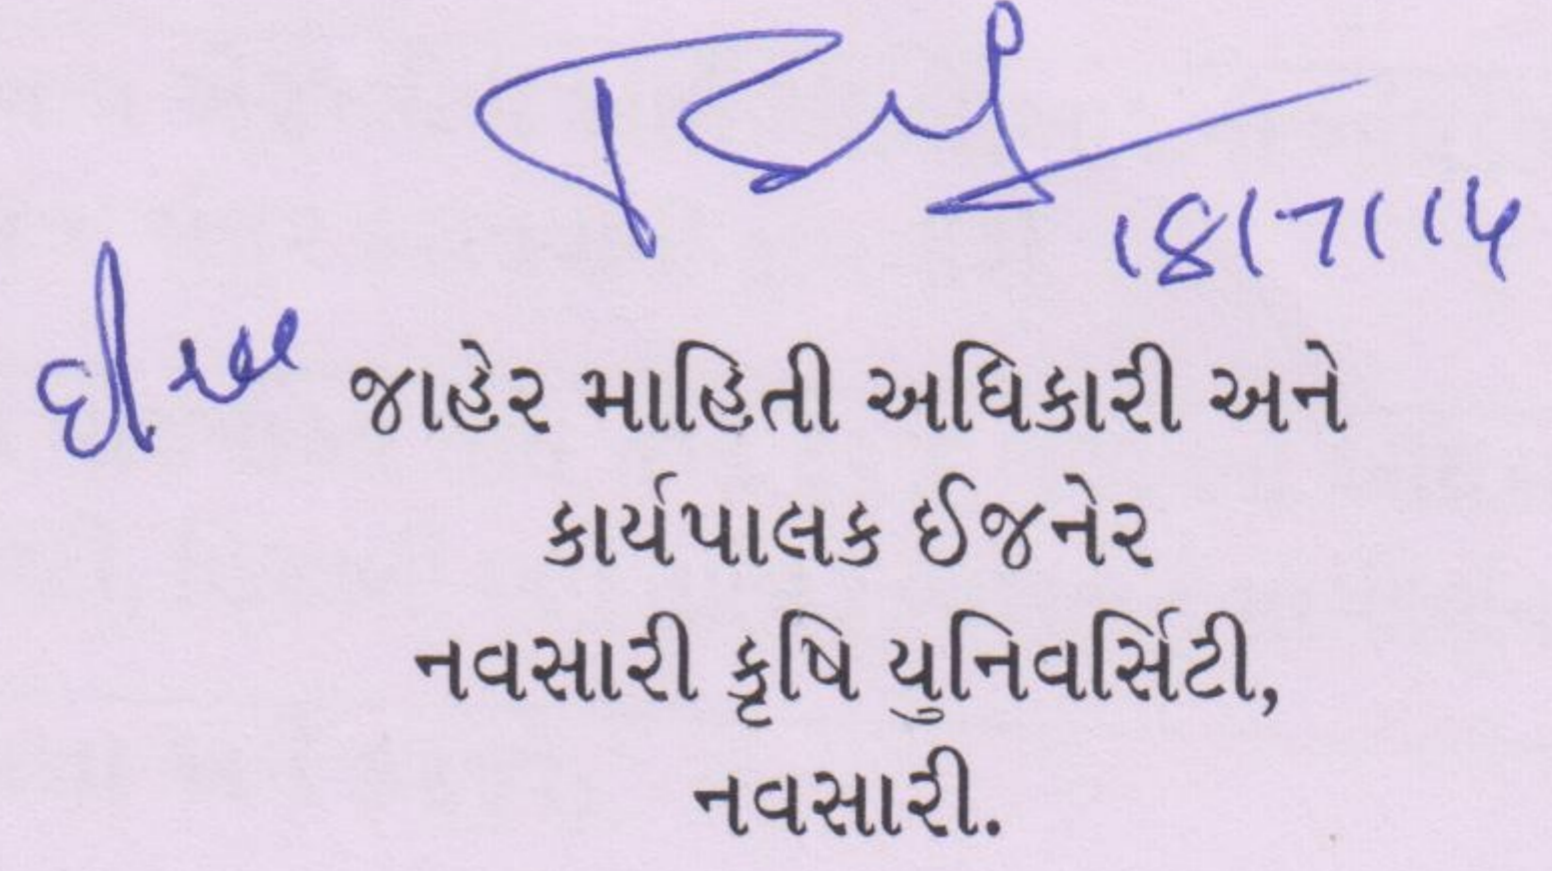 18/7/14
જાહેર માહિતી અધિકારી અને
કાર્યપાલક ઈજનેર
નવસારી કૃષિ યુનિવર્સિટી,
નવસારી.